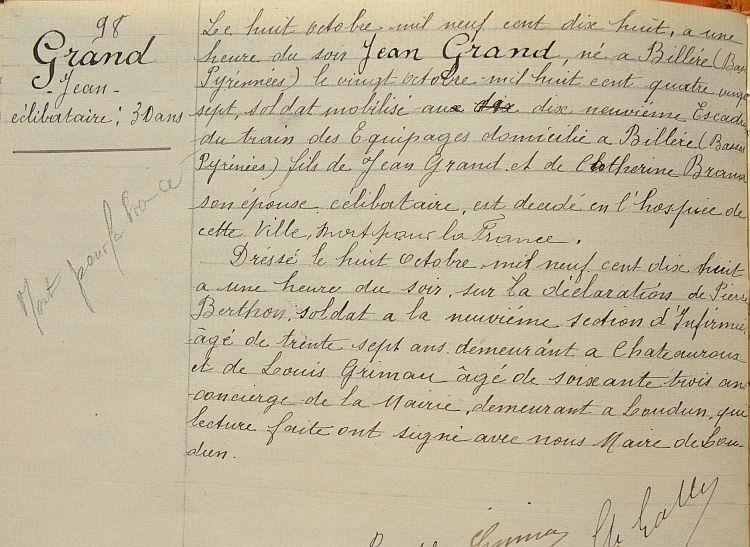 98
Grand
- Jean -
célibataire; 30 ans
Mort pour la France
Le huit Octobre mil neuf cent dix huit, a une
heure du soir Jean Grand, né a Billère (Basses
Pyrénnées) le vingt Octobre mil huit cent quatre vingt
sept, soldat mobilisé aux dix dix neuvième Escadron
du train des Equipages domicilié a Billère (Basses
Pyrénées) fils de Jean Grand et de Catherine
son épouse, célibataire, est décédé en l'hospice de
cette Ville, Mort pour la France.
Dressé le huit Octobre mil neuf cent dix huit
a une heure du soir, sur la déclarations de Pierre
Berthon, soldat a la neuvième section d'Infirmiers
âgé de trente sept ans demeurant a Chateauroux
et de Louis Grimau âgé de soixante trois ans
concierge de la Mairie, demeurant a Loudun, qui
lecture faite ont signé avec nous Maire de Lou-
dun.